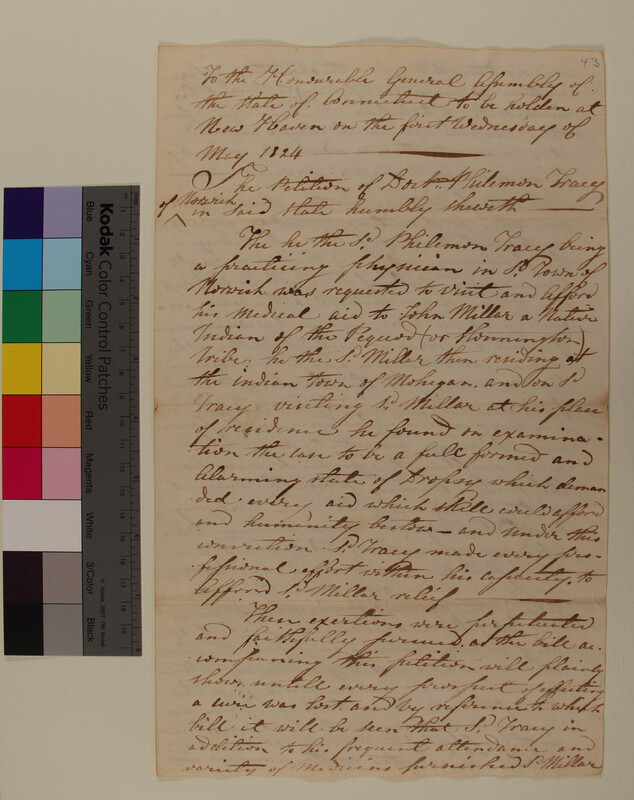 43
To the Honourable General Assembly of
the State of Connecticut to be holden at
New Haven on the first Wednesday of
May 1824
The Petition of Doctr. Philemon Tracy
of Norwich
in said State humbly sheweth
The he the Sd. Philemon Tracy being
a practicing physician in Sd. Town of
Norwich was requested to visit and afford
his medical aid to John Millar a Native
Indian of the Pequod (or Stonnington)
tribe, he the Sd. Millar then residing at
the indian town of Mohegan. and on Sd.
Tracy visiting Sd. Millar at his place
of residence he found on examina-
tion the case to be a full formed and
alarming state of Dropsy which deman
ded every aid which skill could afford
and humanity bestow - and under this
conviction Sd. Tracy made every pro-
fessional effort within his capacity to
afford Sd. Millar relief
These exertions were perpetuated
and faithfully pursued, as the bill ac-
companying this petition will plainly
show, untill every prospect of effecting
a cure was lost. and by reference to which
bill it will be seen that Sd. Tracy in
addition to his frequent attendance and
variety of medicins furnished Sd. Millar
Kodak Color Control Patches
Blue
Cyan
Green
Yellow
Red
Magenta
White
3/Color
Black